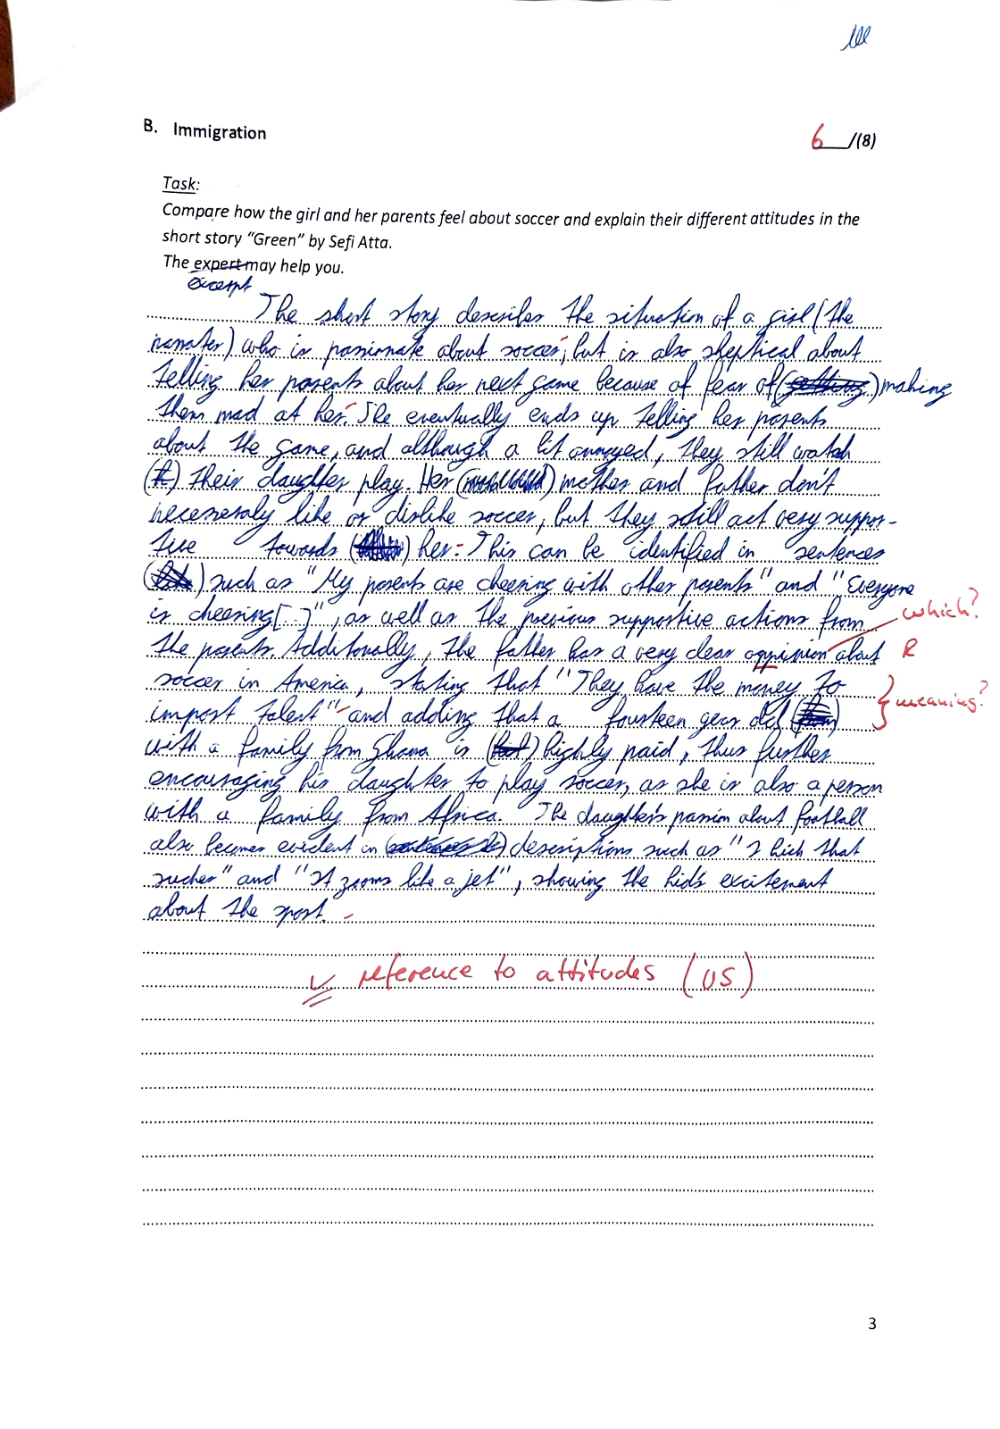 B. Immigration
6 /(8)
Task:
Compare how the girl and her parents feel about soccer and explain their different attitudes in the
short story "Green" by Sefi Atta.
The expert may help you.
excerpt
The short story describes the situation of a girl (the
narrator) who is passionate about soccer, but is also skeptical about
telling her parents about her next game because of fear of (getting) making
them mad at her. She eventually ends up telling her parents
about the game, and although a bit annoyed, they still watch
(t) their daughter play. Her () mother and father don't
necesseraly like or dislike soccer, but they still act very suppor-
tive towards () her. This can be identified in sentences
() such as "My parents are cheering with other parents" and "Everyone
is cheering[...]", as well as the previous supportive actions from
which?
the parents. Additonally, the father has a very clear oppinion about
R
soccer in America, stating that "They have the money to
import talent" and adding that a fourteen year old ()
meaning?
with a family from Ghana is () highly paid, thus further
encouraging his daughter to play soccer, as she is also a person
with a family from Africa. The daughter's passion about football
also becomes evident in (sentences) descriptions such as "I kick that
sucker" and "It zooms like a jet", showing the kid's excitement
about the sport.
reference to attitudes (US)
3